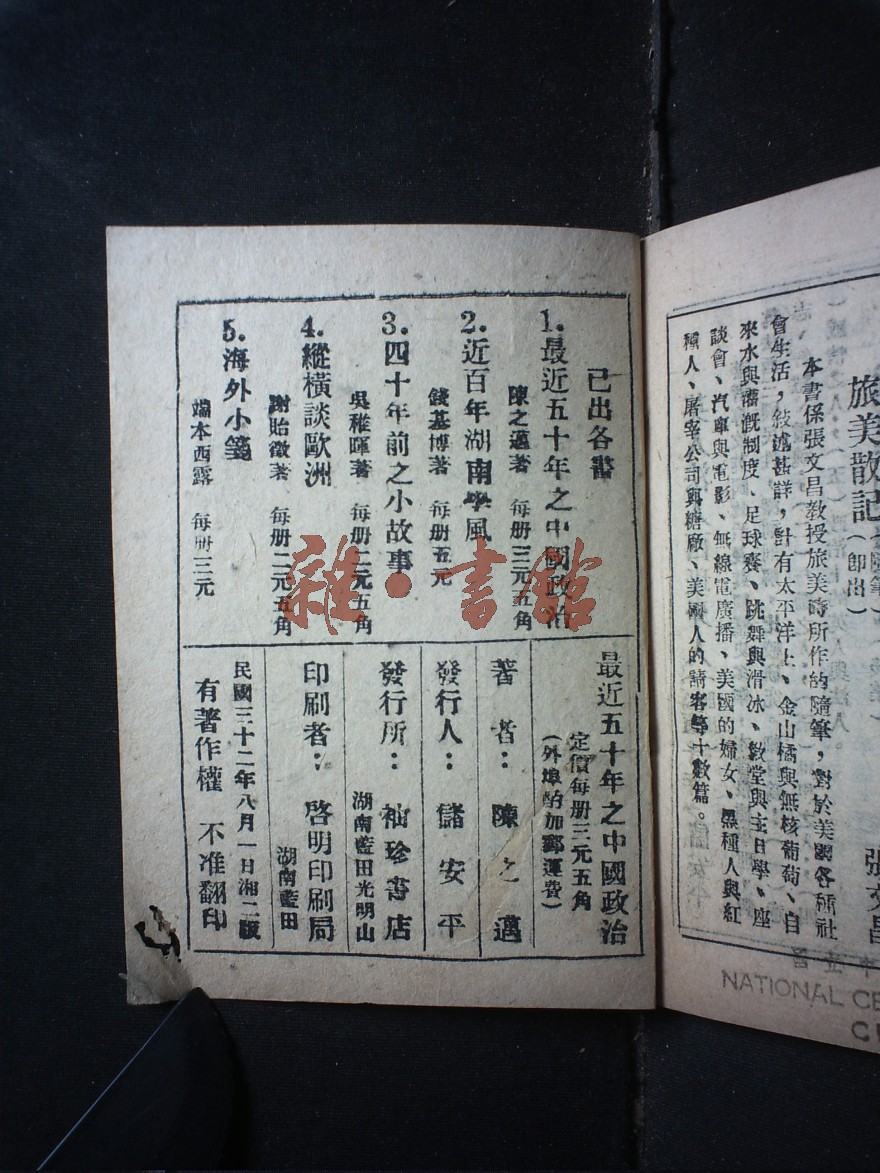 旅美散記
（即出）
張文昌
本書係張文昌教授旅美時所作的隨筆，對於美國各種社
會生活，敍述甚詳，計有太平洋上、金山橘與無核葡萄、自
來水與灌漑制度、足球賽、跳舞與滑冰、敎堂與主日學、座
談會、汽車與電影、無線電廣播、美國的婦女、黑種人與紅
種人、屠宰公司與糖廠、美國人的請客等十數篇。
NATIONAL CE
已出各書
1.最近五十年之中國政治
陳之邁著 每册三元五角
2.近百年湖南學風
錢基博著 每册五元
3.四十年前之小故事
吳稚暉著 每册二元五角
4.縱橫談歐洲
謝貽徵著 每册二元五角
5.海外小箋
端木西露 每册三元
最近五十年之中國政治
定價每册三元五角
（外埠酌加郵運費）
著者：陳之邁
發行人：儲安平
發行所：袖珍書店
湖南藍田光明山
印刷者：啓明印刷局
湖南藍田
民國三十二年八月一日湘二版
有著作權 不准翻印
雜·書館